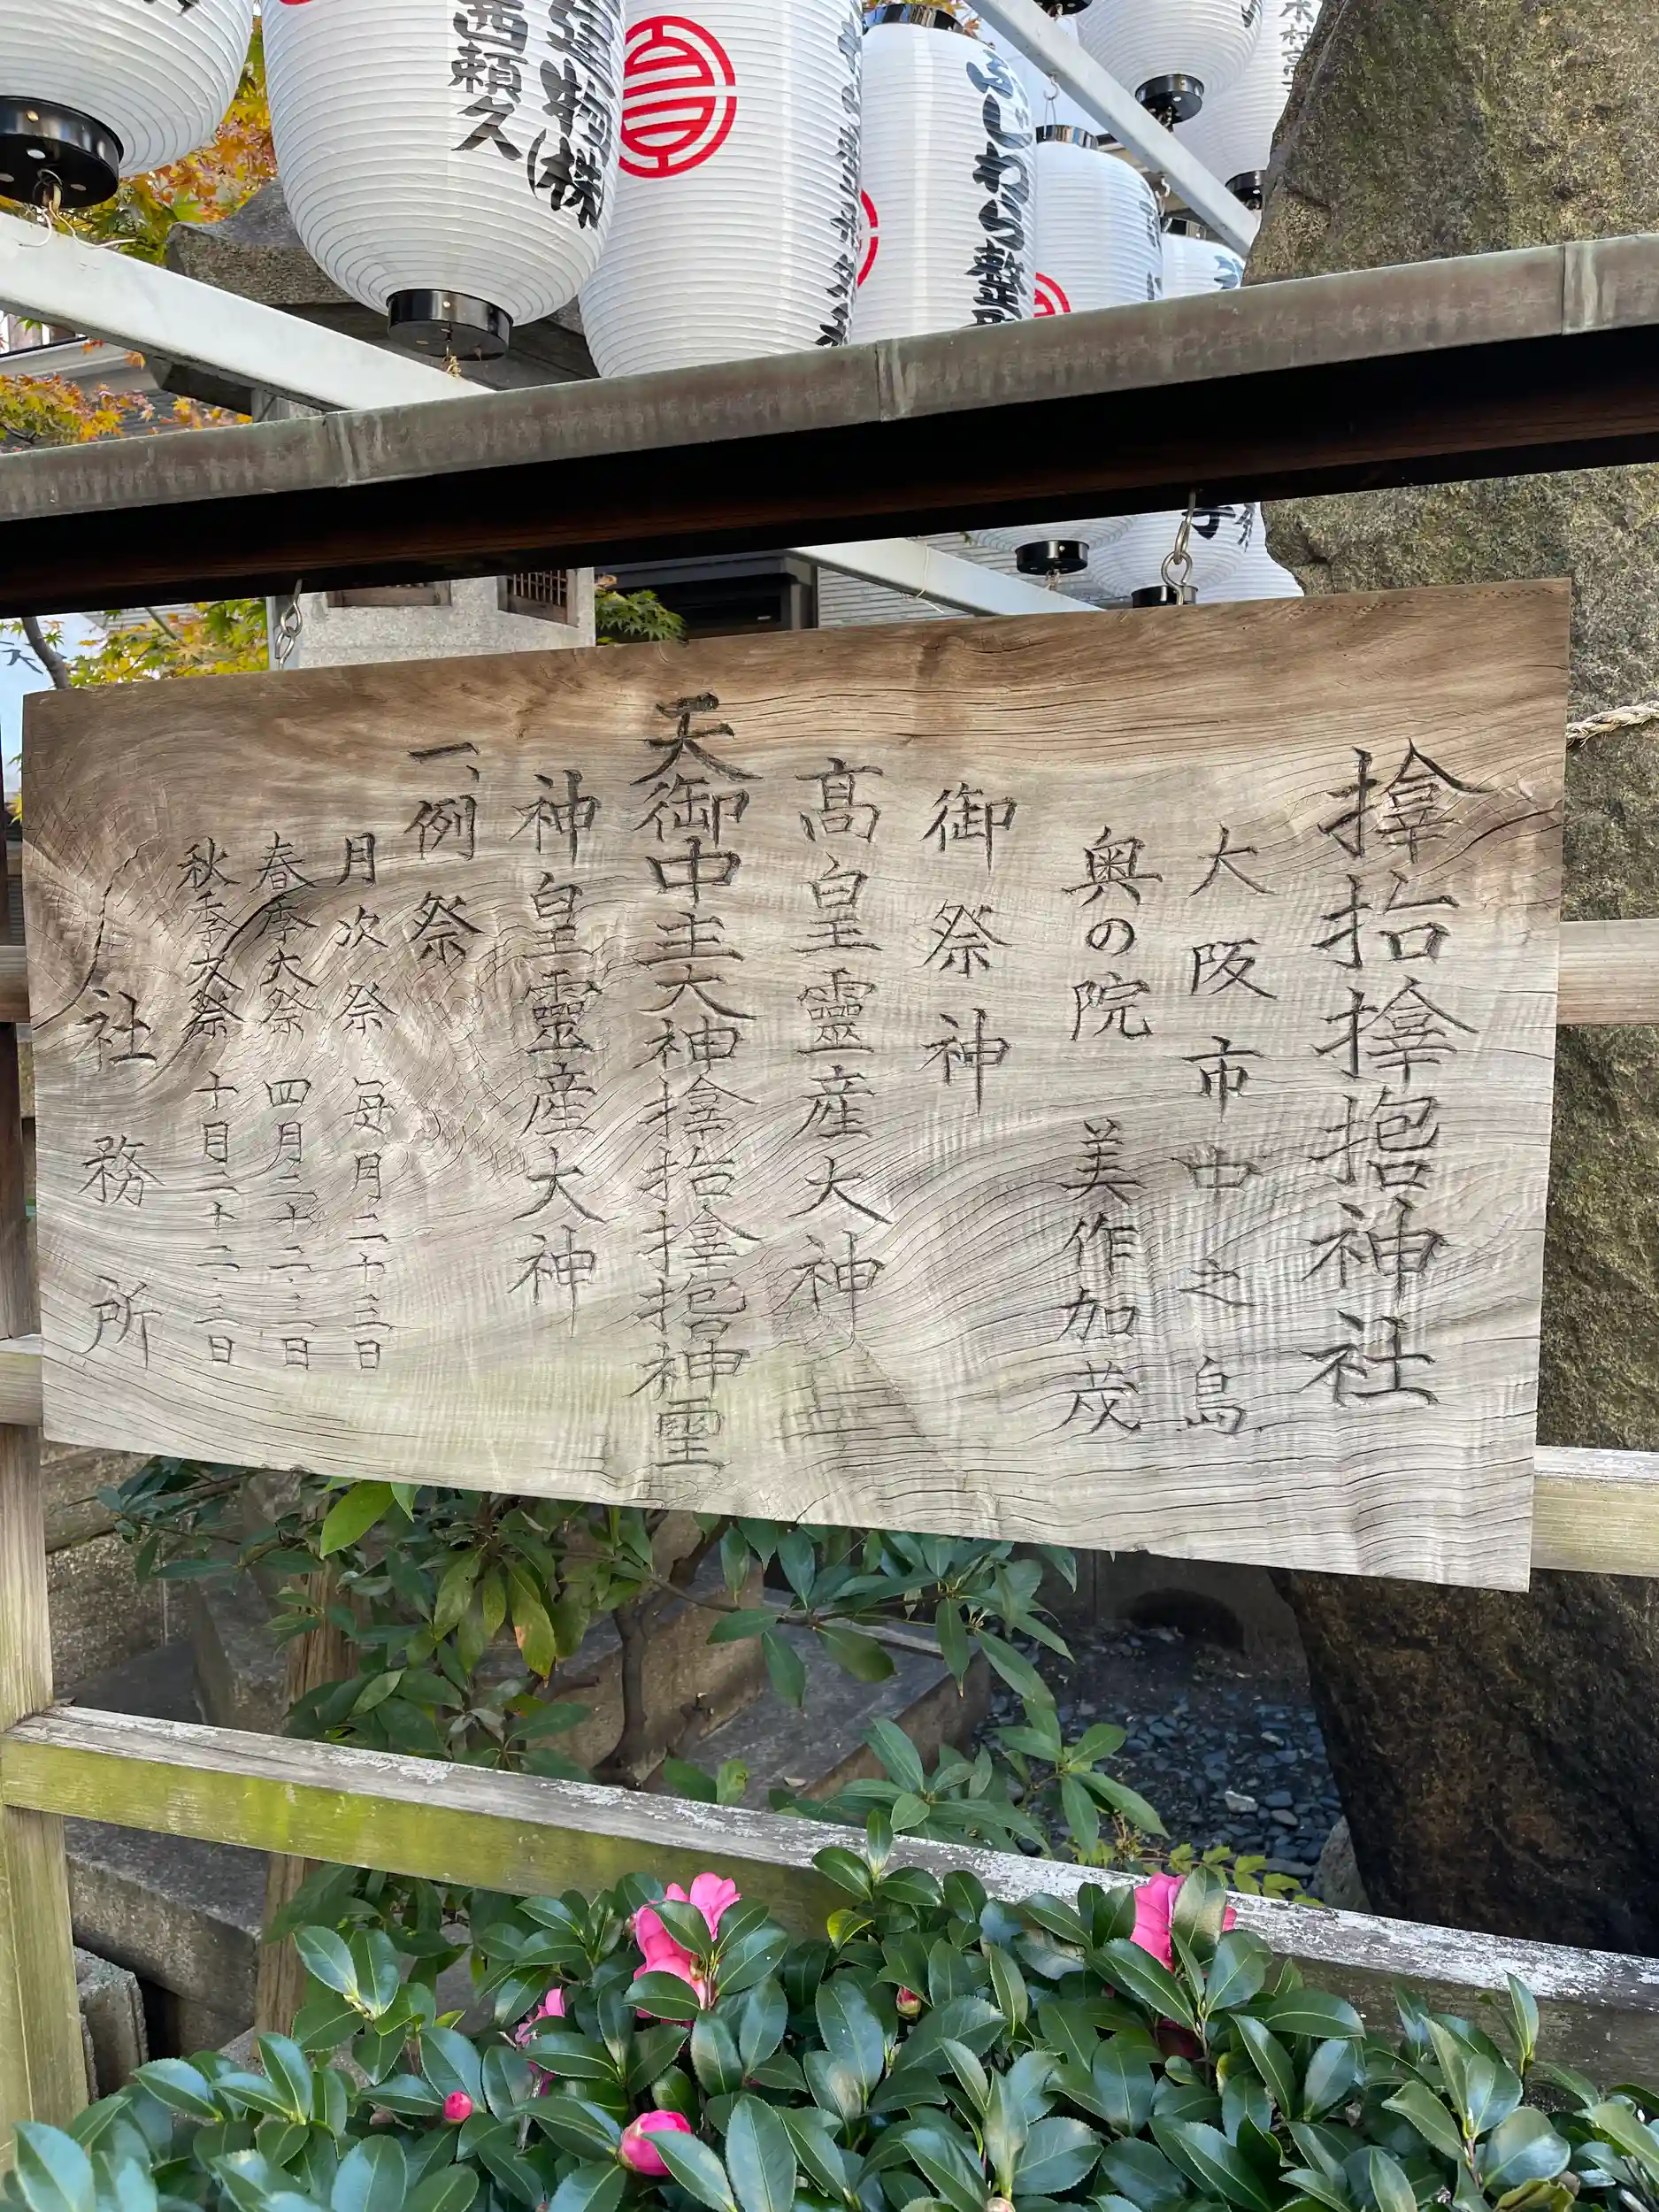 ふしわら整
西頼久
神社
大阪市中之島
奥の院 美作加茂
御祭神
髙皇靈産大神
天御中主大神 神霊
神皇靈産大神
一、例祭
月次祭 毎月二十三日
春季大祭 四月二十二、三日
秋季大祭 十月二十二、三日
社務所